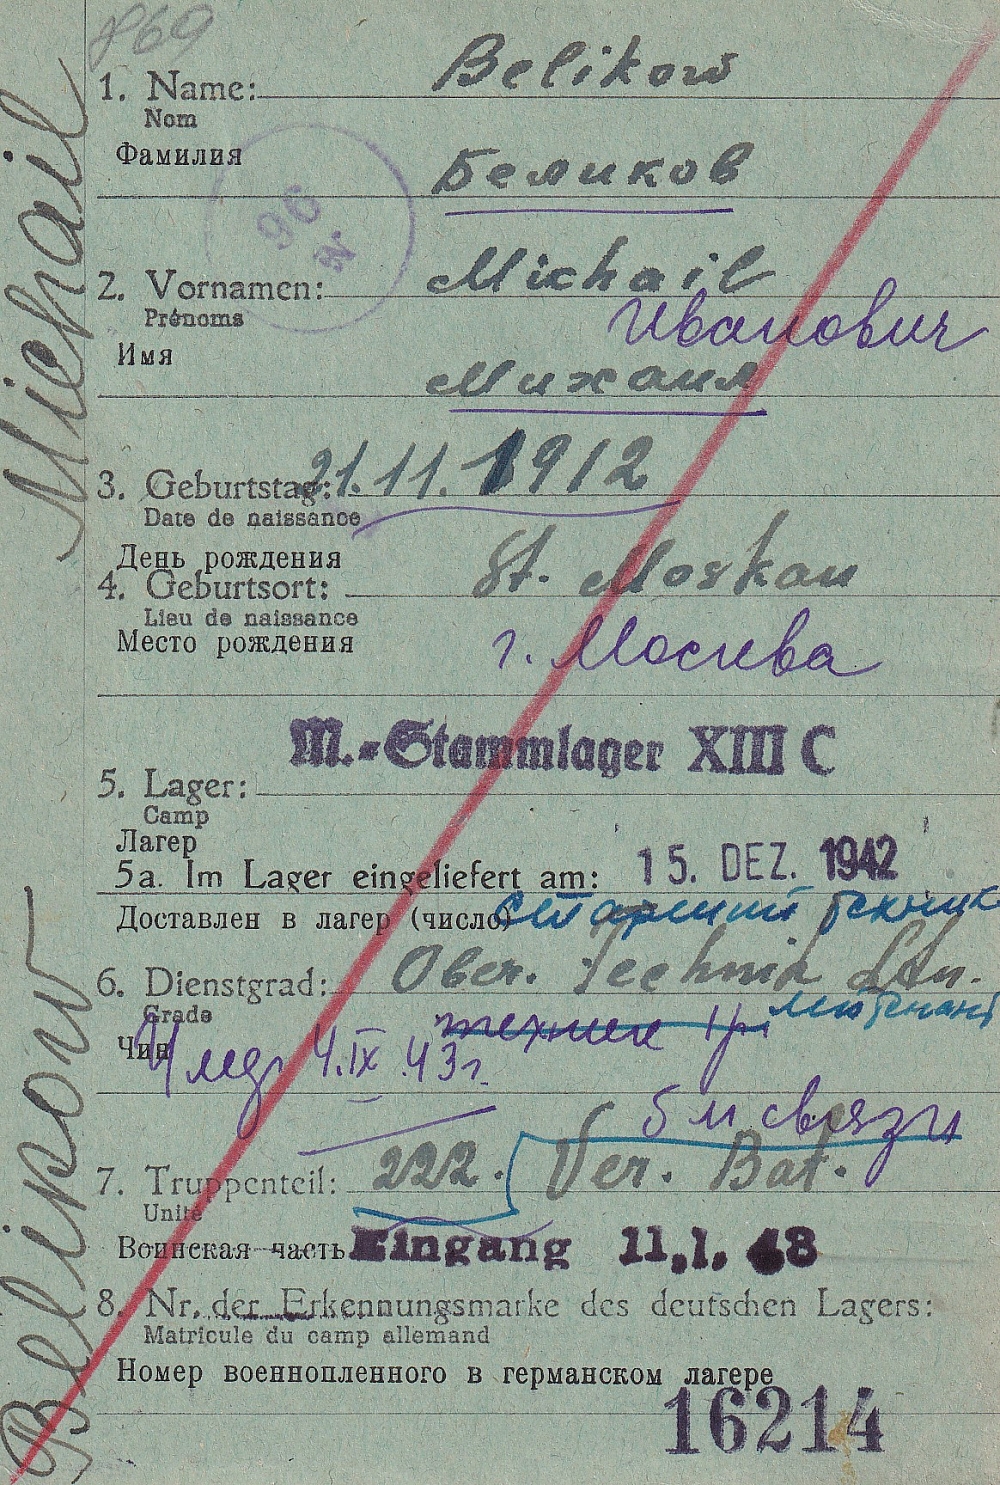 869
1. Name: Belikow
Nom
Фамилия
Беликов
96
2. Vornamen: Michail
Prénoms
Иванович
Имя
Михаил
3. Geburtstag: 21.11.1912
Date de naissance
День рождения
4. Geburtsort: St. Moskau
Lieu de naissance
Место рождения
г. Москва
M.-Stammlager XIII C
5. Lager:
Camp
Лагер
5a. Im Lager eingeliefert am: 15. DEZ. 1942
Доставлен в лагер (число)
старший техник
6. Dienstgrad: Ober. Technik Len.
лейтенант
Grade
техник
Чин
4.IX.43г.
б-н связи
7. Truppenteil: 222. Ver. Bat.
Unité
Воинская часть Eingang 11.1.43
8. Nr. der Erkennungsmarke des deutschen Lagers:
Matricule du camp allemand
Номер военнопленного в германском лагере
16214
Belikow Michail